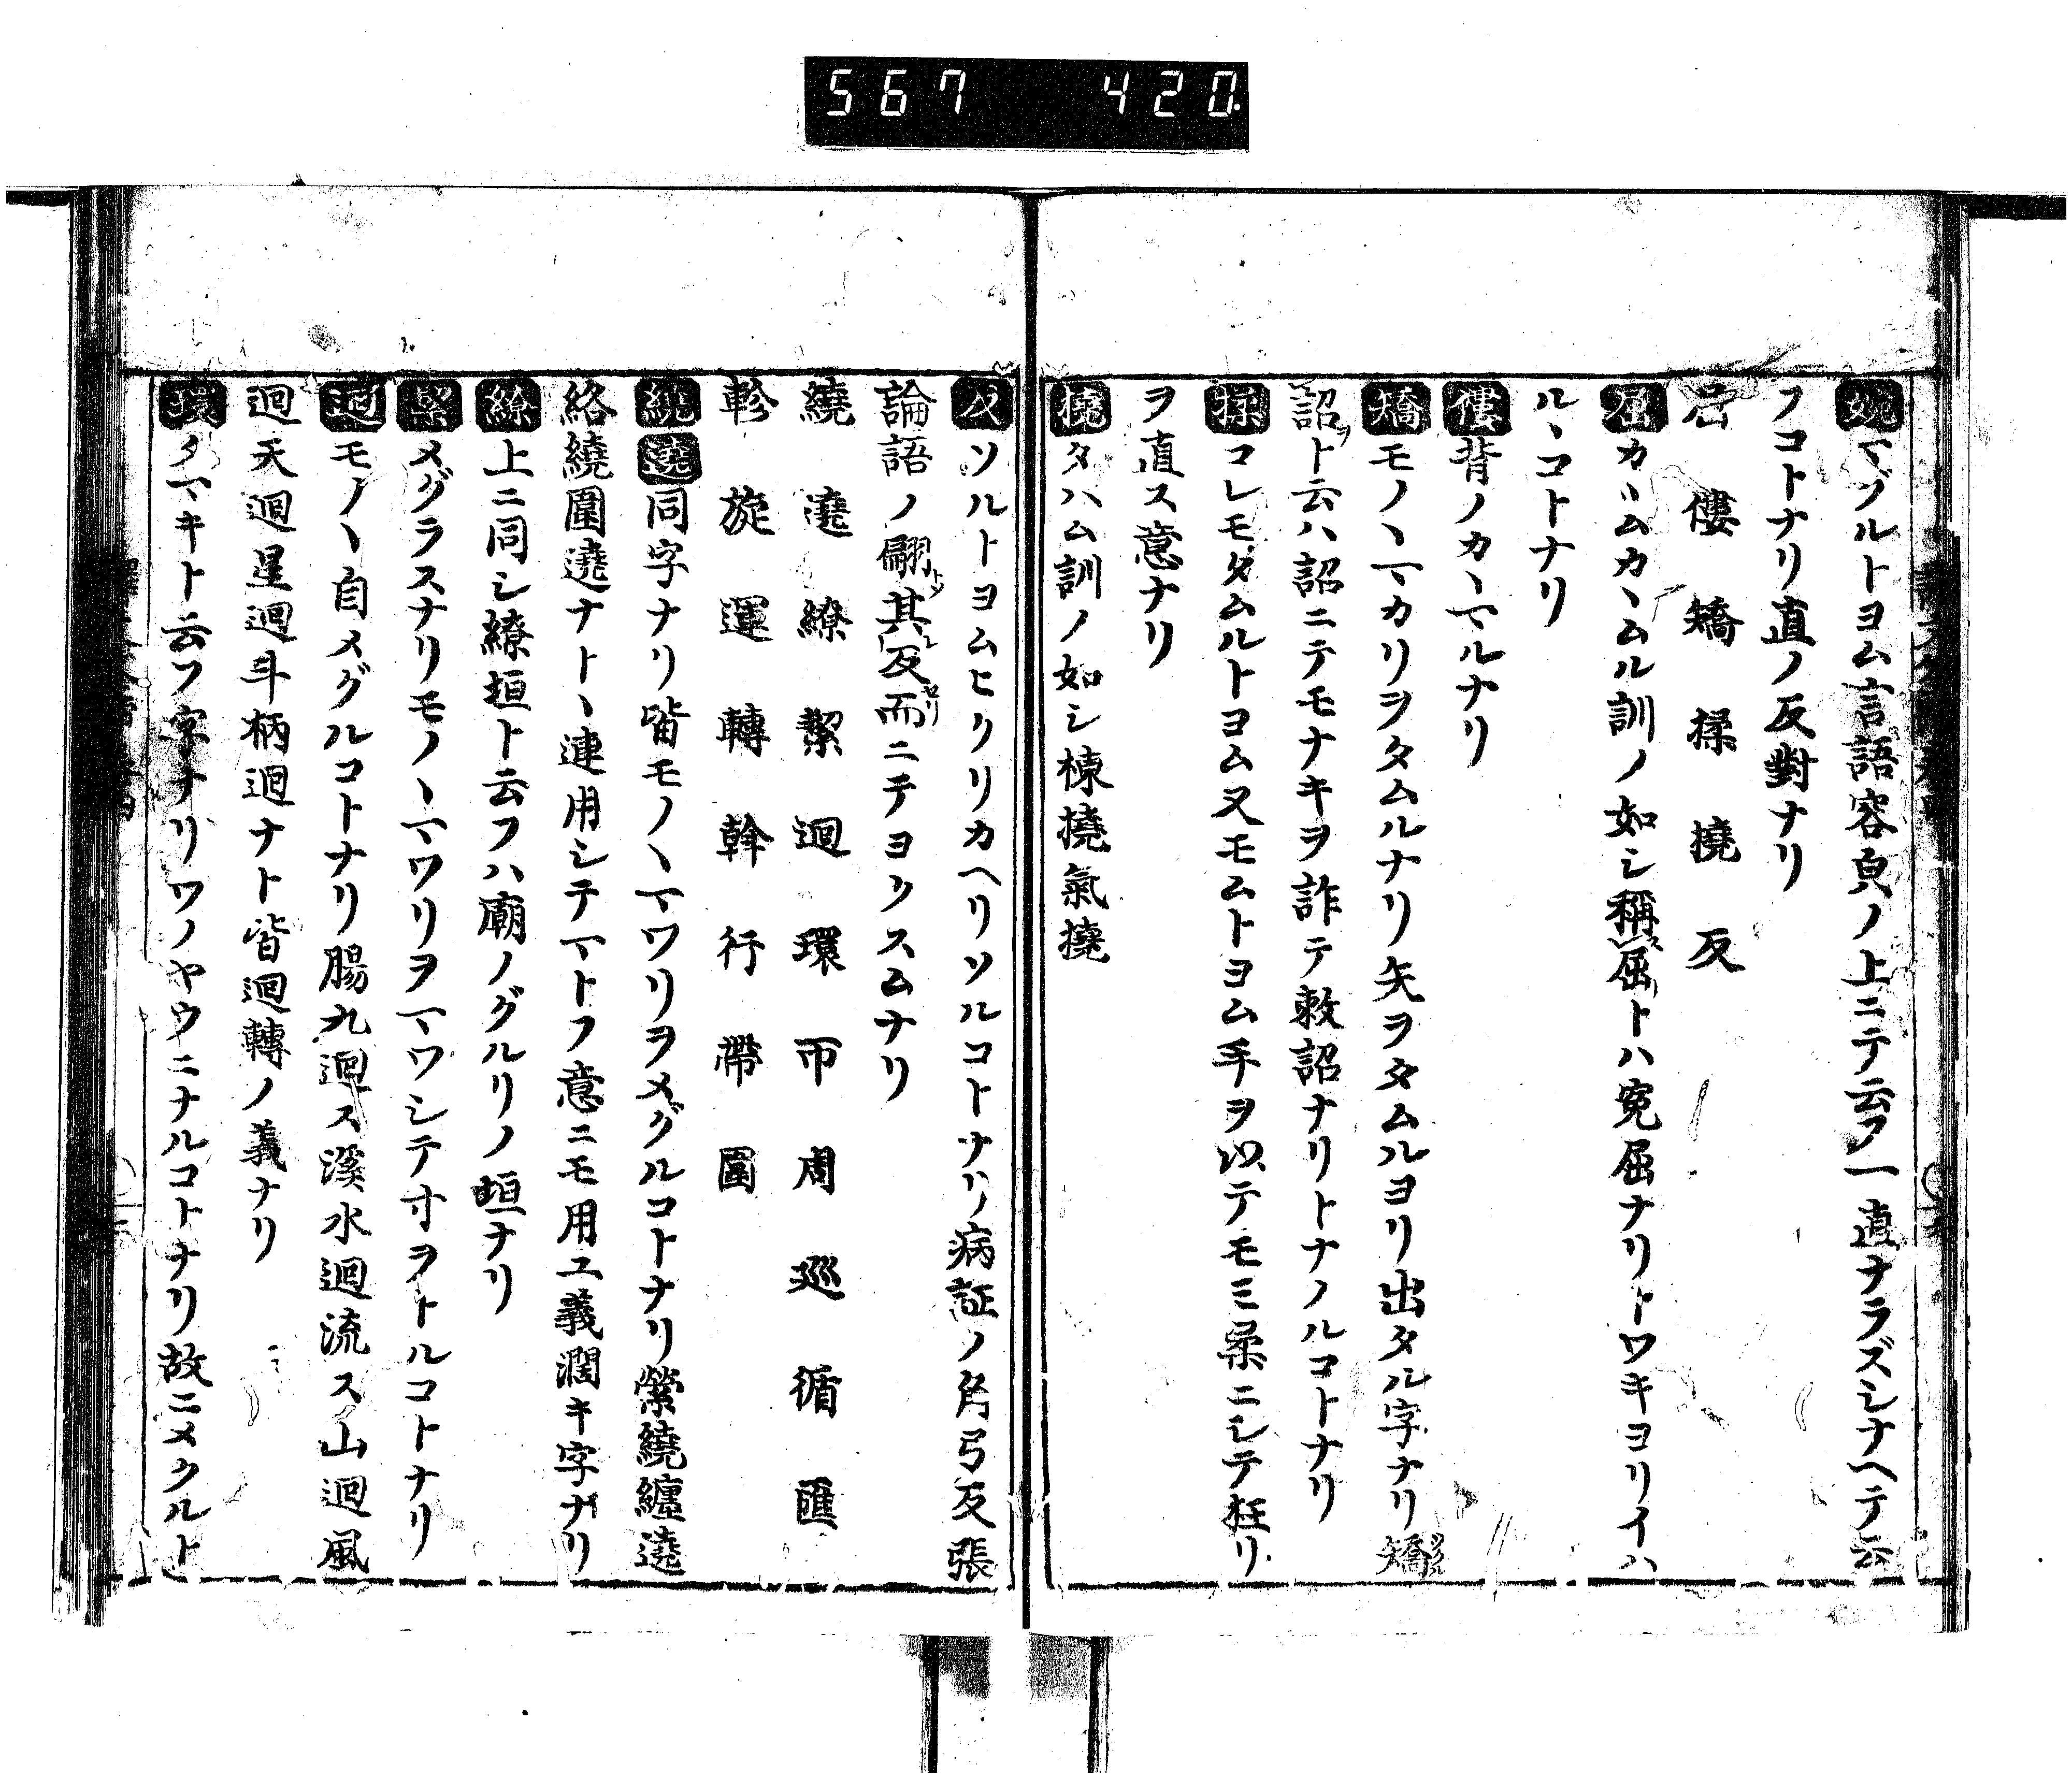 567 420
婉マグルトヨム言語容皃ノ上ニテ云フ一直ナラズシナヘテ云
フコトナリ直ノ反對ナリ
屈 僂 矯 揉 撓 反
屈カヽムカヽムル訓ノ如シ稱屈トハ寃屈ナリトワキヨリイハ
ルヽコトナリ
僂背ノカヽマルナリ
矯モノヽマカリヲタムルナリ矢ヲタムルヨリ出タル字ナリ矯
詔ト云ハ詔ニテモナキヲ詐テ敕詔ナリトナノルコトナリ
揉コレモタムルトヨム又モムトヨム手ヲ以テモミ柔ニシテ枉リ
ヲ直ス意ナリ
撓タハム訓ノ如シ棟撓氣撓
反ソルトヨムヒクリカヘリソルコトナリ病証ノ角弓反張
論語ノ翩其反而ニテヨクスムナリ
繞 遶 繚 絜 迴 環 帀 周 巡 循 匯
軫 旋 運 轉 斡 行 帶 圍
繞遶同字ナリ皆モノヽマワリヲメグルコトナリ縈繞纏遶
絡繞圍遶ナトヽ連用シテマトフ意ニモ用ユ義濶キ字ナリ
繚上ニ同シ繚垣ト云フハ廟ノグルリノ垣ナリ
絜メグラスナリモノヽマワリヲマワシテ寸ヲトルコトナリ
迴モノヽ自メグルコトナリ腸九迴ス溪水迴流ス山迴風
迴天迴星迴斗柄迴ナト皆迴轉ノ義ナリ
環タマキト云フ字ナリワノヤウニナルコトナリ故ニメクルト